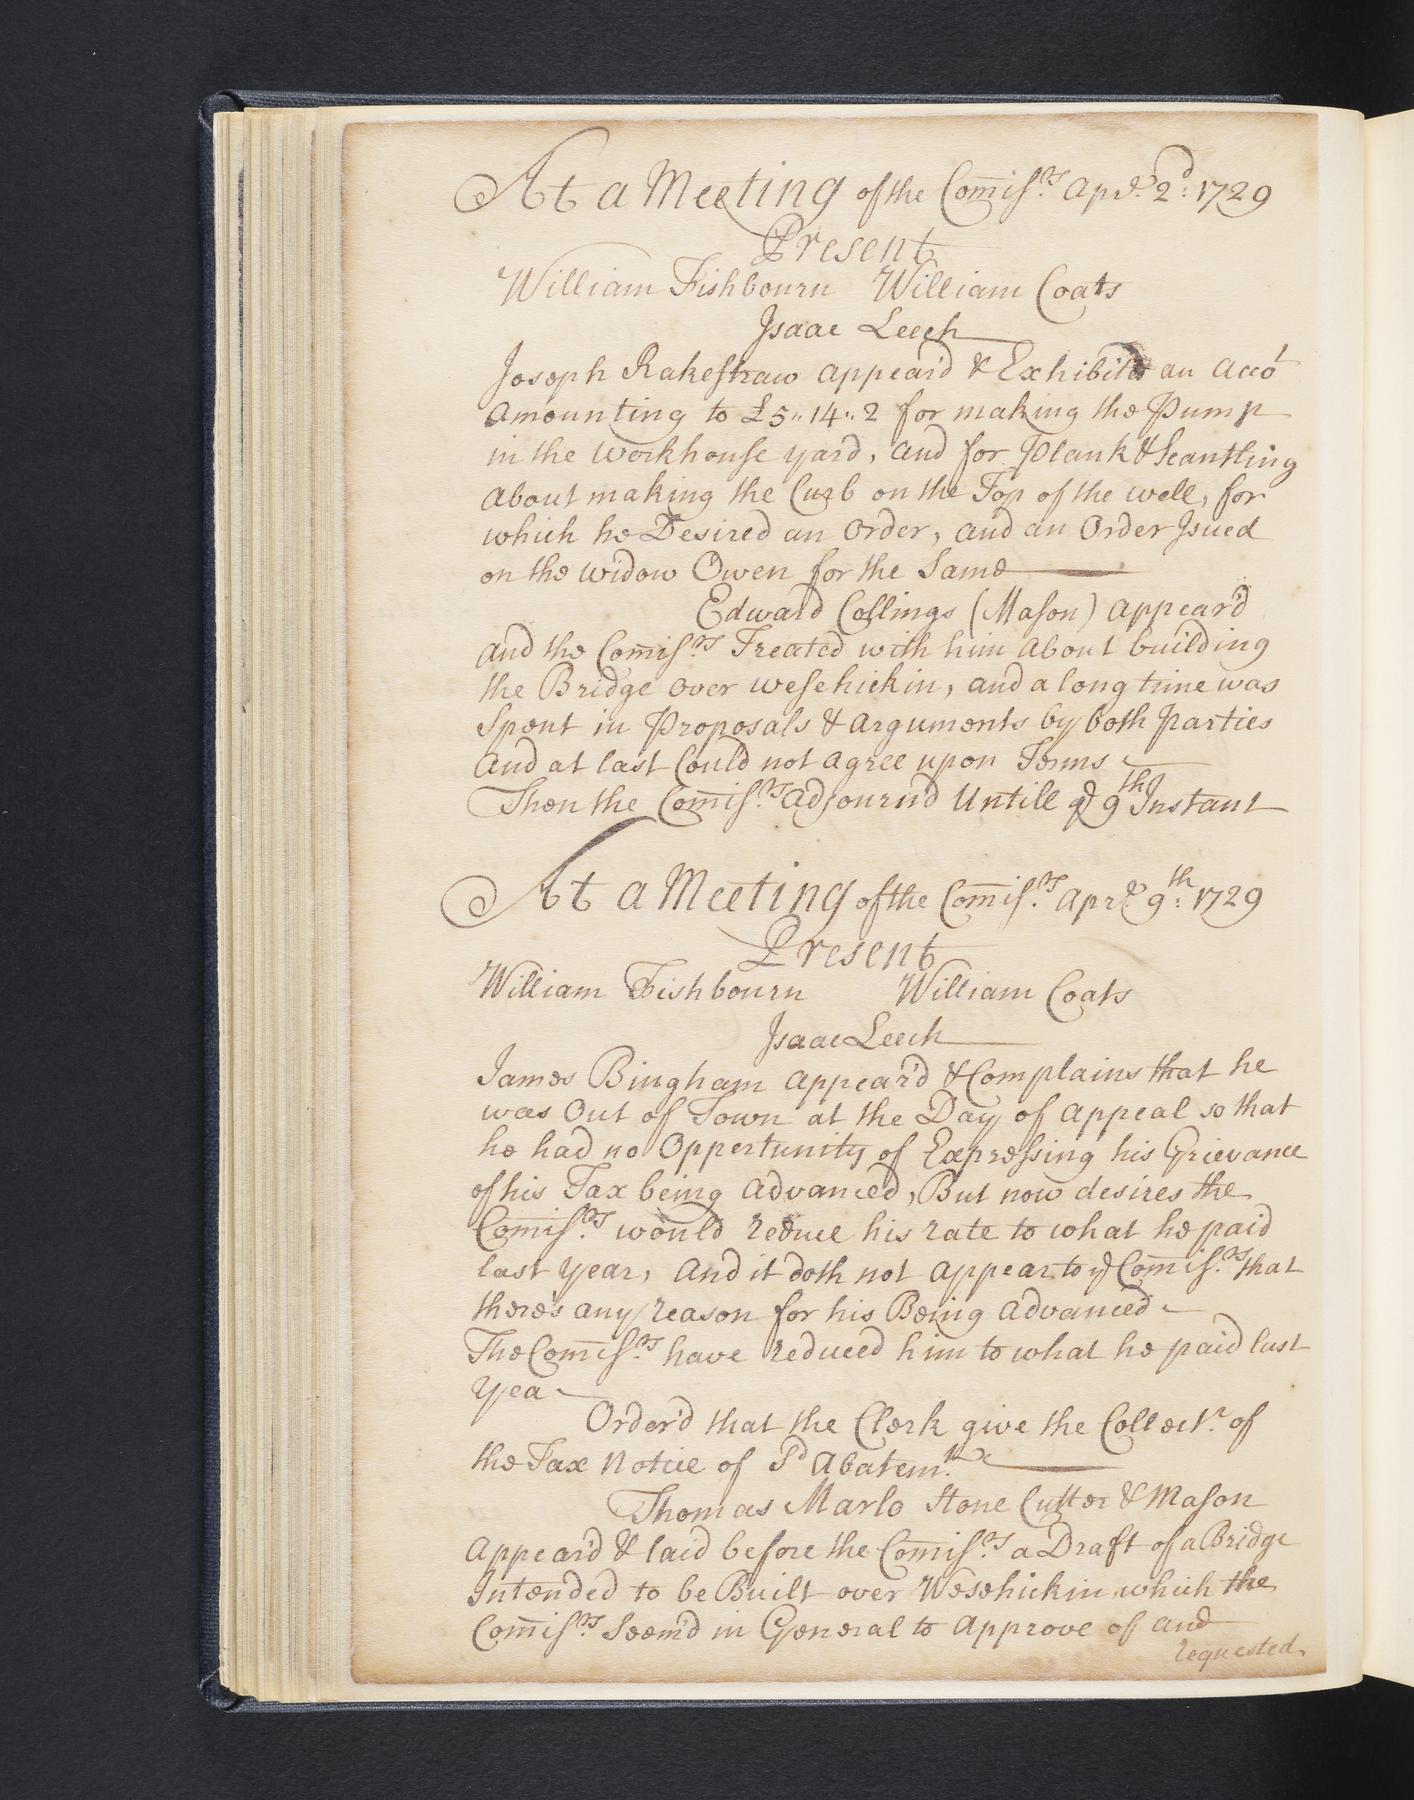 At a Meeting of the Comiss.rs Aprl. 2d: 1729
Present
William Fishbourn William Coats
Isaac Leech
Joseph Rakestraw appear'd & Exhibited an Acco.t
Amounting to £5,, 14,, 2 for making the Pump
in the Workhouse yard, and for Plank & Scantling
About making the Curb on the Top of the well, for
which he Desired an Order, and an Order Isued
on the widow Owen for the Same
Edward Collings (Mason) appear'd
and the Comiss.rs Treated with him About building
the Bridge over Wesehickin, and a long time was
Spent in Proposals & arguments by both Parties
And at last Could not agree upon Terms
Then the Comiss.rs adjourn'd Untill ye 9th Instant
At a Meeting of the Comiss.rs Aprl. 9th: 1729
Present
William Fishbourn William Coats
Isaac Leech
James Bingham appear'd & Complains that he
was Out of Town at the Day of appeal so that
he had no Oppertunity of Expressing his Grievance
of his Tax being advanced, But now desires the
Comiss.rs would reduce his rate to what he paid
last year, And it doth not appear to ye Comiss.rs that
there's any reason for his Being advanced
The Comiss.rs have reduced him to what he paid last
yea
Order'd that the Clerk give the Collect.r of
the Tax Notice of Sd Abatem.t
Thomas Marlo Stone Cutter & Mason
Appear'd & laid before the Comiss.rs a Draft of a Bridge
Intended to be Built over Wesehickin which the
Comiss.rs Seem'd in General to Approve of and
requested